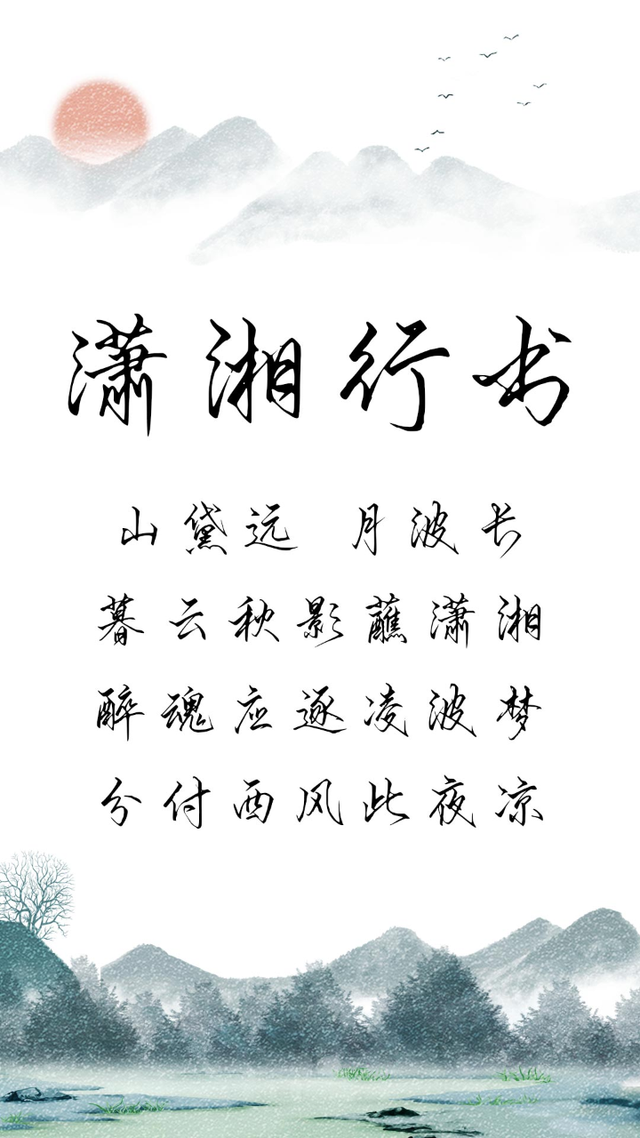 潇湘行书
山黛远 月波长
暮云秋影蘸潇湘
醉魂应逐凌波梦
分付西风此夜凉